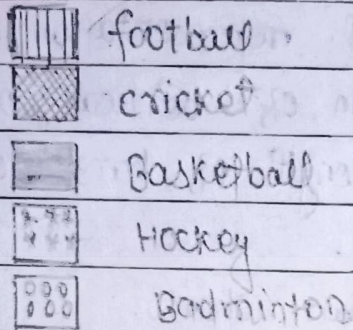 football
cricket
Basketball
Hockey
Badminton